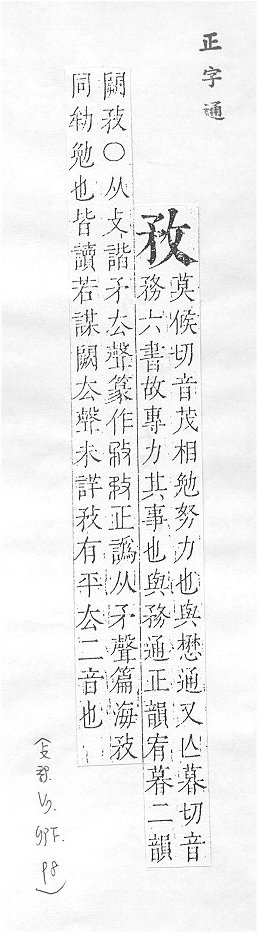 正字通
敄
莫候切音茂相勉努力也與懋通又亾暮切音
務六書故專力其事也與務通正韻宥暮二韻
闕敄○从攴諧矛厺聲篆作敄敄正譌从矛聲篇海敄
同勑勉也皆讀若謀闕厺聲未詳敄有平厺二音也